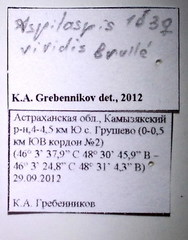 Aspilaspis 1839
viridis Brullé.
K.A. Grebennikov det., 2012
Астраханская обл., Камызякский
р-н,4-4,5 км Ю с. Грушево (0-0,5
км ЮВ кордон №2)
(46° 3' 37,9" С 48° 30' 45,9" В –
46° 3' 24,8" С 48° 31' 4,3" В)
29.09.2012
К.А. Гребенников